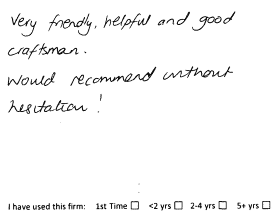 Very friendly, helpful and good
craftsman.
Would recommend without
hesitation!
I have used this firm: 1st Time ☐ <2 yrs ☐ 2-4 yrs ☐ 5+ yrs ☐